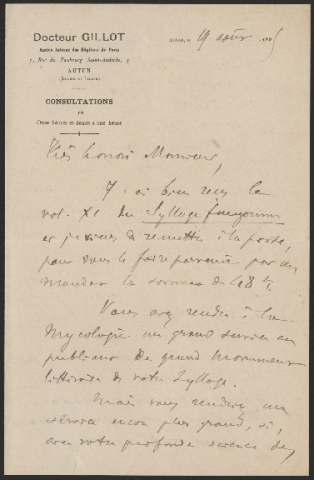 Docteur GILLOT
Ancien Interne des Hôpitaux de Paris
5, Rue du Faubourg Saint-Andoche, 5
AUTUN
(SAÔNE-ET-LOIRE)
CONSULTATIONS
DE
Onze heures et demie à une heure
AUTUN, le 19 août 1895
Très honoré Monsieur,
J'ai bien reçu le
vol. XI du Sylloge fungorum
et je viens de remettre à la poste,
pour vous le faire parvenir par un
mandat la somme de 48 f.
Vous avez rendu à la
Mycologie un grand service en
publiant ce grand monument
littéraire de votre Sylloge.
Mais vous rendriez un
service encore plus grand, si,
avec votre profonde science de,